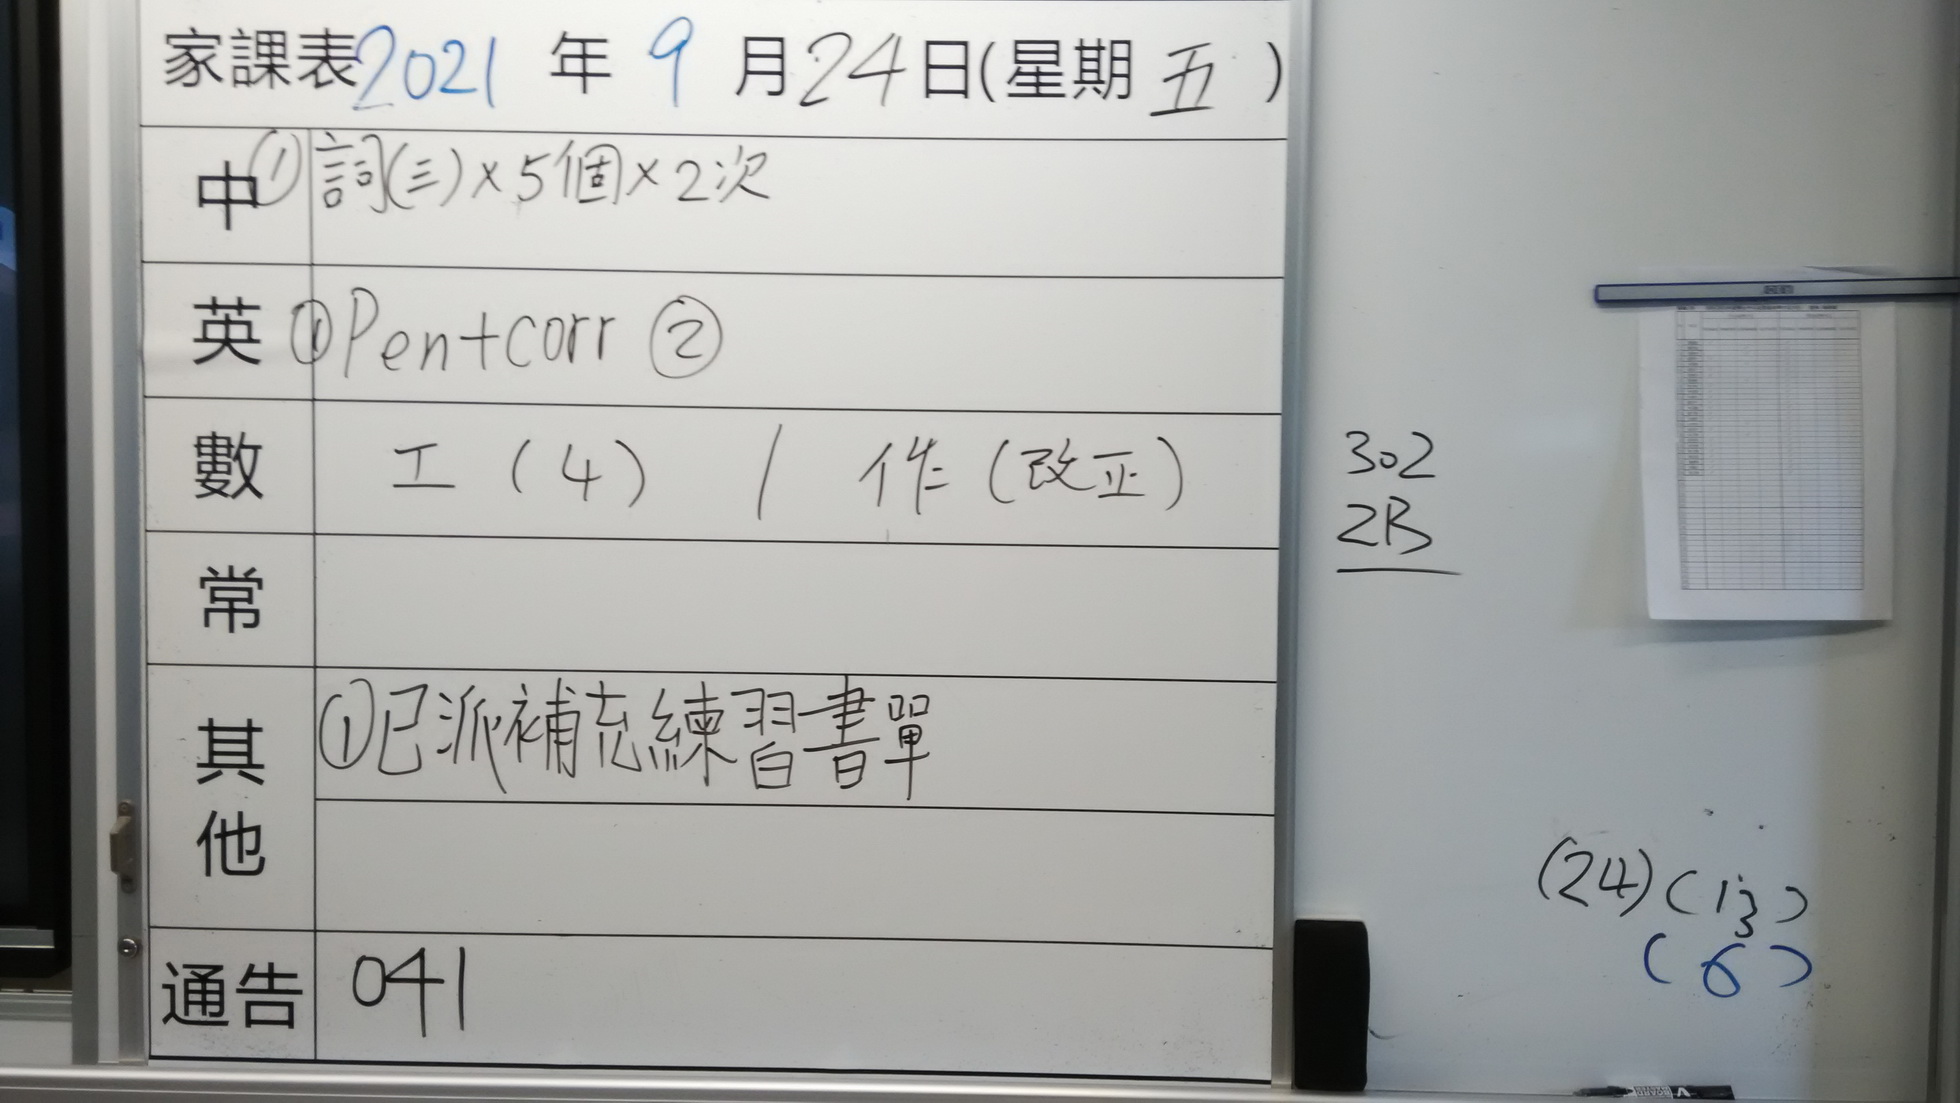 家課表2021年9月24日(星期五)
中 ① 詞(三)×5個×2次
英 ① Pen+corr ②
數 工(4) / 作(改正)
常
其他 ①已派補充練習書單
通告 041
302
2B
(24)(13)
(6)